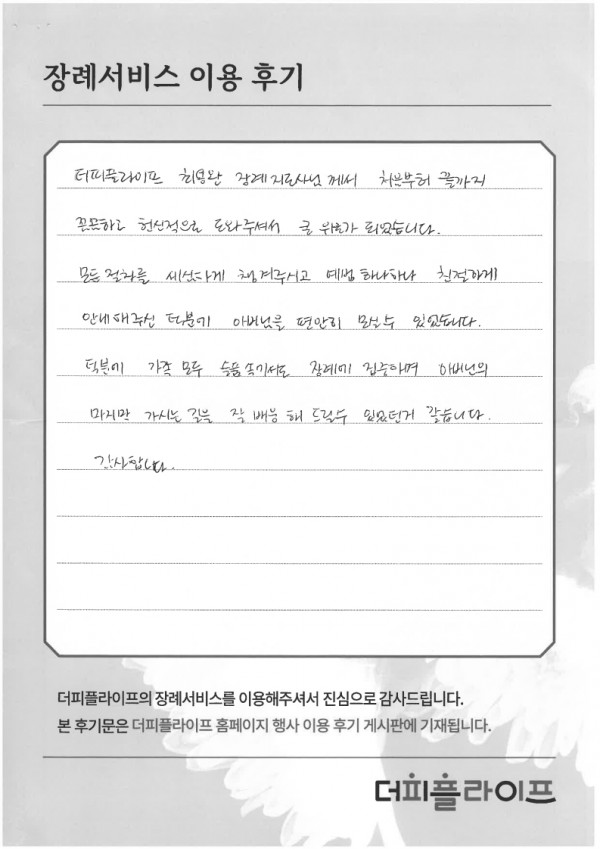 장례서비스 이용 후기
더피플라이프 최영완 장례지도사님께서 처음부터 끝까지
꼼꼼하고 헌신적으로 도와주셔서 큰 위로가 되었습니다.
모든 절차를 세심하게 챙겨주시고 예법 하나하나 친절하게
안내해주신 덕분에 아버님을 편안히 모실수 있었습니다.
덕분에 가족 모두 슬픔속에서도 장례에 집중하며 아버님의
마지막 가시는 길을 잘 배웅 해 드릴수 있었던거 같습니다.
감사합니다.
더피플라이프의 장례서비스를 이용해주셔서 진심으로 감사드립니다.
본 후기문은 더피플라이프 홈페이지 행사 이용 후기 게시판에 기재됩니다.
더피플라이프